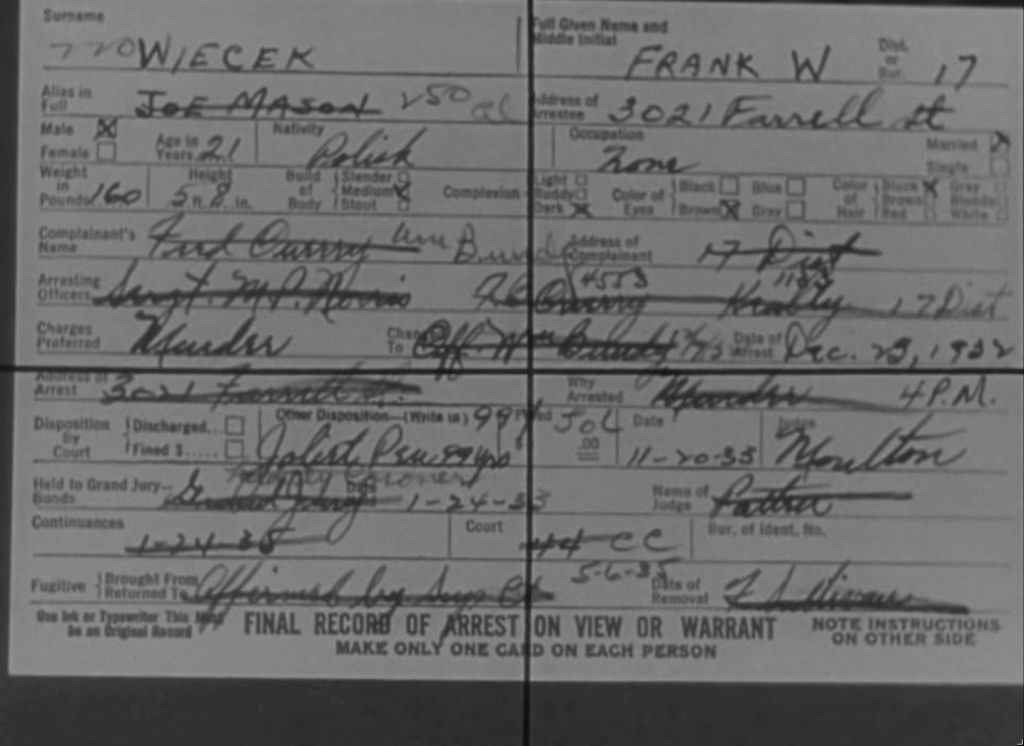 Surname Full Given Name and Middle Initial
WIECEK FRANK W Dist. or Bur. 17
Alias in Full JOE MASON 250 Address of Arrestee 3021 Farrell st
Male ☒ Female ☐ Age in Years 21 Nativity Polish Occupation None Married Single
Weight in Pounds 160 Height 5 ft. 8 in. Build of Body Slender Medium Stout Complexion Light Ruddy Dark Color of Eyes Black Brown Blue Gray Color of Hair Black Brown Red Gray Blonde White
Complainant's Name Wm Bundy Address of Complainant 17 Dist
4553
Arresting Officers Sergt. M.P. Norris 17 Dist
Charges Preferred Murder To Off. Wm Bundy Date of Arrest Dec. 23, 1932
Address of Arrest 3021 Farrell Why Arrested Murder 4 P.M.
Disposition by Court Discharged... Fined $..... Other Disposition—(Write in) 99 Joliet Pen 99 yrs Date 11-20-33 Judge Moulton
Coroner
Held to Grand Jury— Bonds Grand Jury 1-24-33 Name of Judge
Continuances 1-24-33 Court 44 CC Bur. of Ident. No.
5-6-35
Fugitive Brought From Returned To Affirmed by Sup Ct Date of Removal
Use Ink or Typewriter This Must be an Original Record FINAL RECORD OF ARREST ON VIEW OR WARRANT NOTE INSTRUCTIONS ON OTHER SIDE
MAKE ONLY ONE CARD ON EACH PERSON